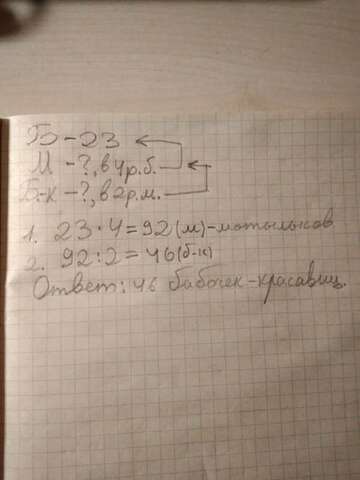 Б - 23
М - ?, в 4 р. б.
Б-к - ?, в 2 р. м.
1. 23 · 4 = 92 (м) - мотыльков
2. 92 : 2 = 46 (б-к)
Ответ: 46 бабочек-красавиц.